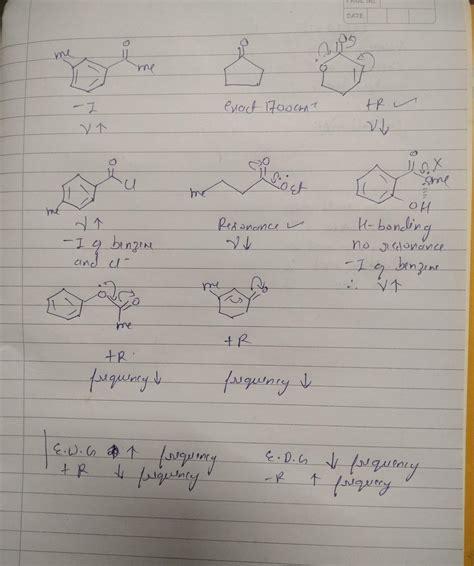 PAGE NO.
DATE
me O me
-I
ν↑
O
exact 1700cm⁻¹
O O
+R ✓
ν↓
O Cl me
ν↑
-I of benzene
and Cl⁻
me O OEt
Resonance ✓
ν↓
O X OMe OH
H-bonding
no resonance
-I of benzene
∴ ν↑
O O me
+R
frequency ↓
me O
+R
frequency ↓
E.W.G ↑ frequency
+R ↓ frequency
E.D.G ↓ frequency
-R ↑ frequency